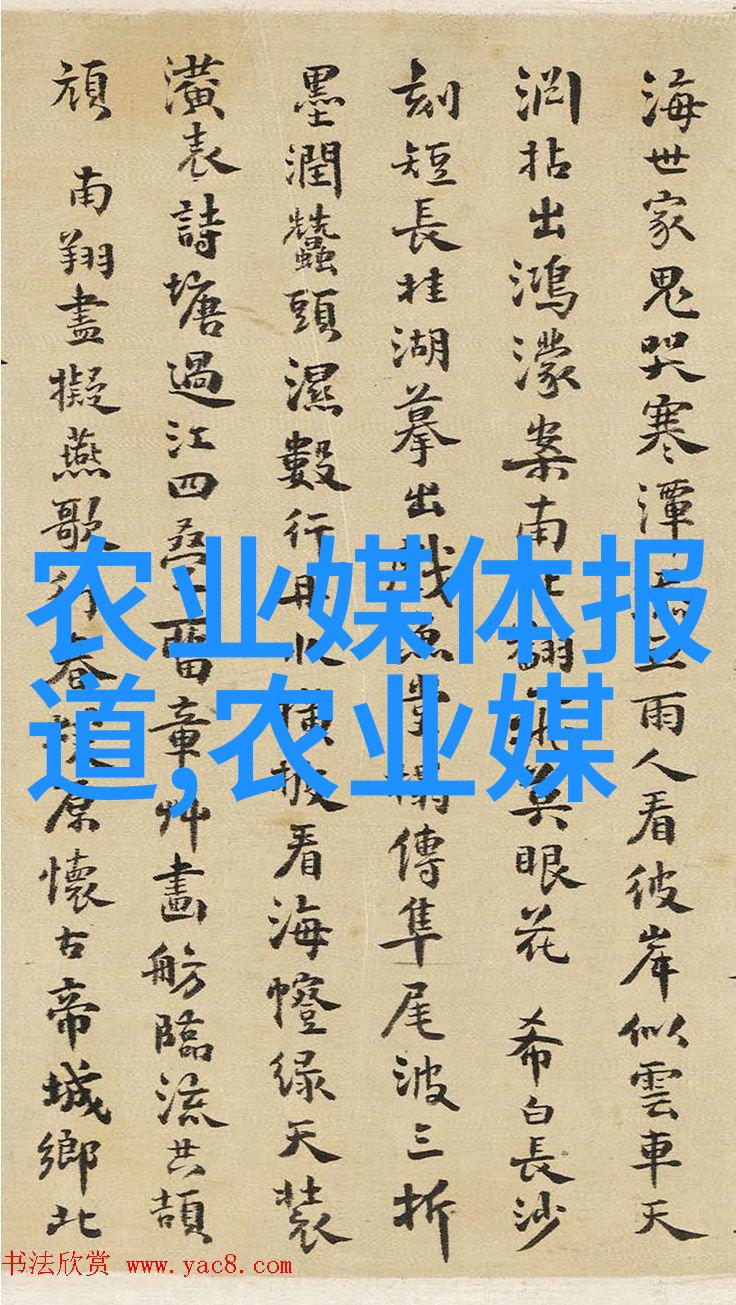 海世家鬼哭寒潭雨人看彼岸似雲車天
洞拈出鴻濛案南眼花 希白長沙
刻短長桂湖摹出傳隼尾波三折
墨潤蠶頭濕數行看海幢绿天裝
潢表詩塘過江四章艸畫舫臨流共頡
頏 南翔盡擬燕歌行原懷古帝城鄉北
农业媒体报
道,农业媒
书法欣赏 www.yac8.com